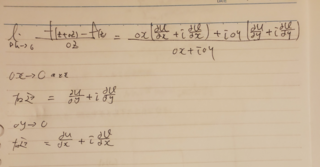 lim Δz→0 f(z+Δz) - f(z) / Δz = Δx(∂u/∂x + i ∂v/∂x) + i Δy(∂u/∂y + i ∂v/∂y) / Δx + i Δy
Δx→0
= ∂u/∂y + i ∂v/∂y
Δy→0
= ∂u/∂x + i ∂v/∂x